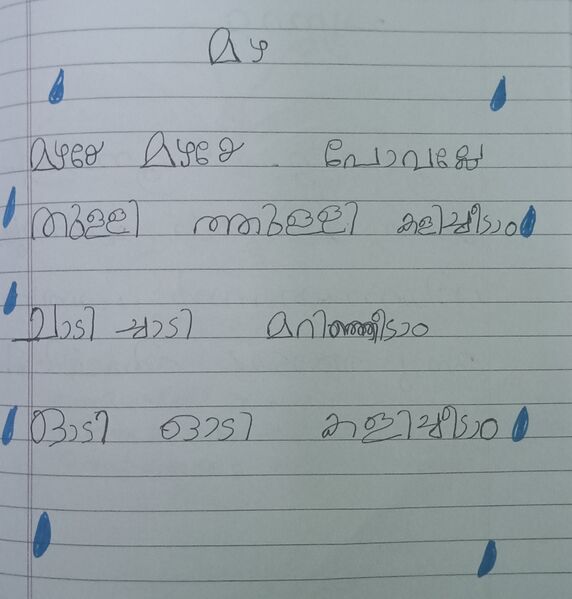 മഴ
മഴയേ മഴയേ പോവല്ലേ
തുള്ളി തുള്ളി കളിച്ചീടാം
ചാടി ചാടി മറിഞ്ഞീടാം
ഓടി ഓടി കളിച്ചീടാം